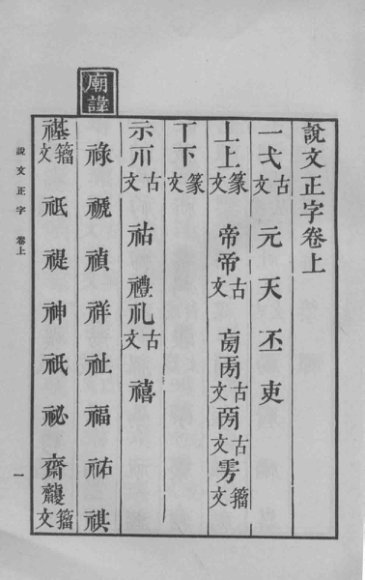 說文正字卷上
一弌古文 元 天 丕 吏
丄上篆文 帝帝古文 㫄古文 古文 雱籒文
丅下篆文
示古文 祜 禮礼古文 禧
祿 禠 禎 祥 祉 福 祐 祺
禥籒文 祇 禔 神 祇 祕 齋籒文
廟諱
說文正字 卷上
一